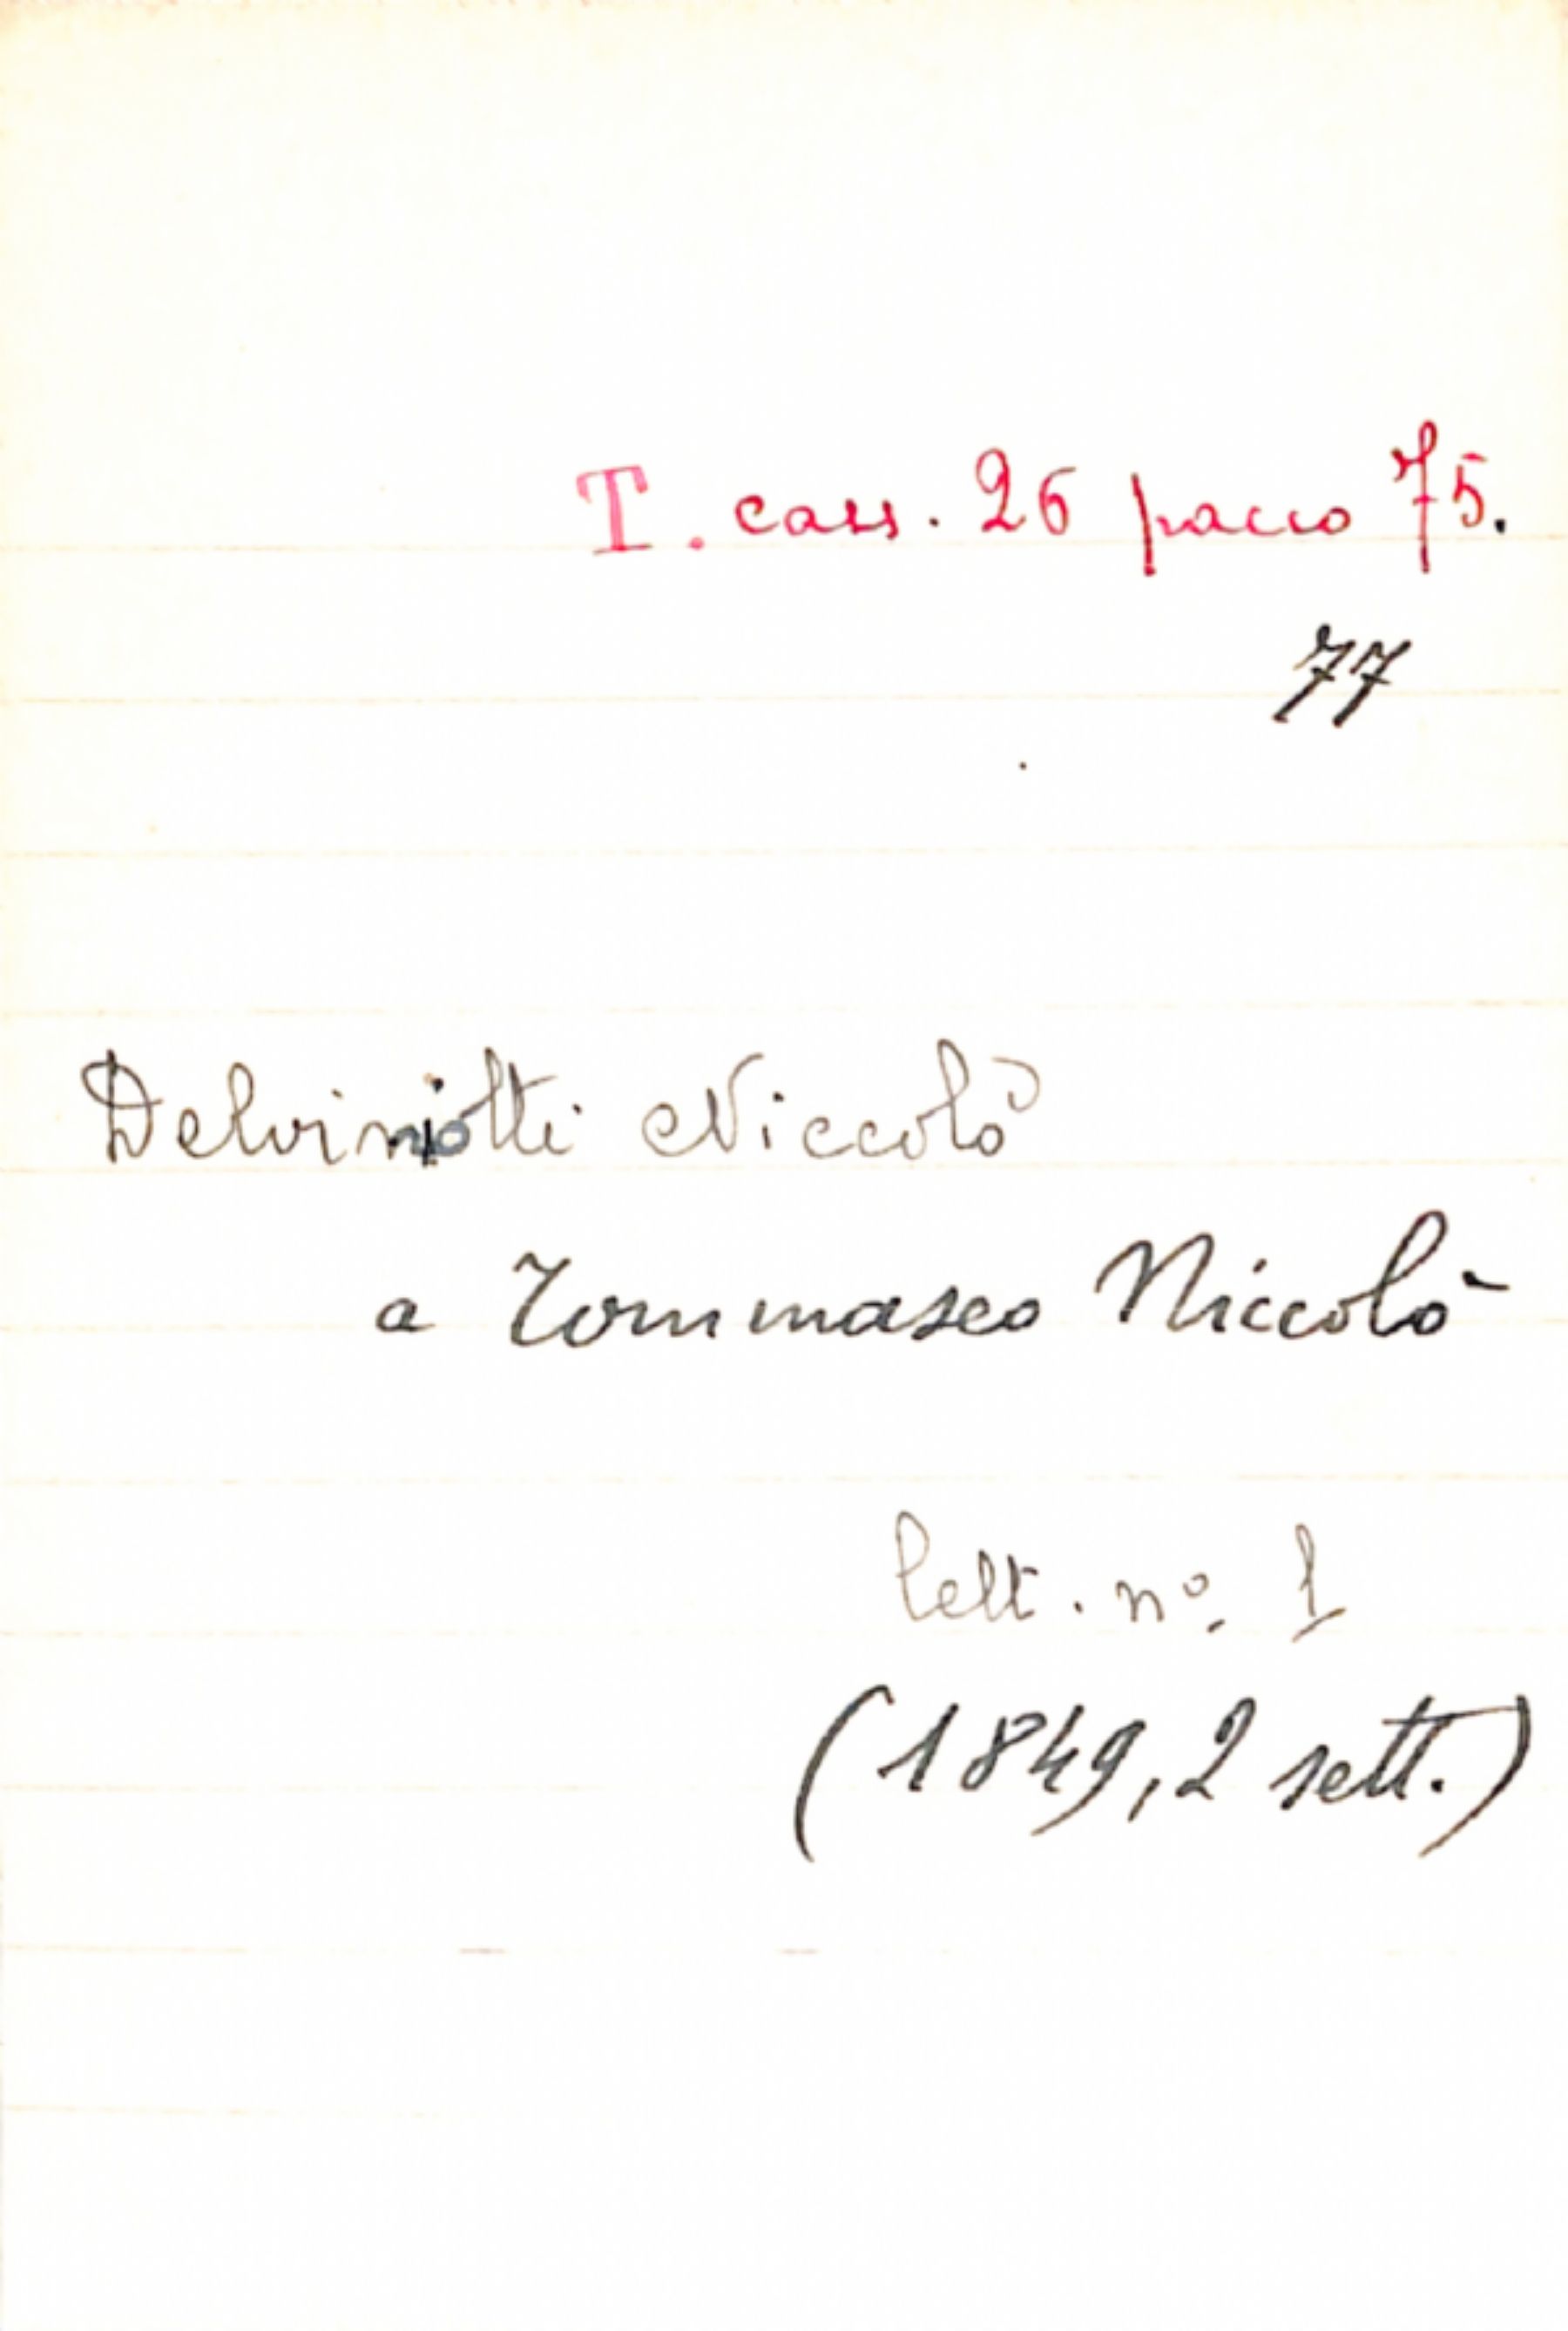 T. cass. 26 pacco 75.
77
Delviniotti Niccolò
a Tommaseo Niccolò
lett. nº. 1
(1849, 2 sett.)